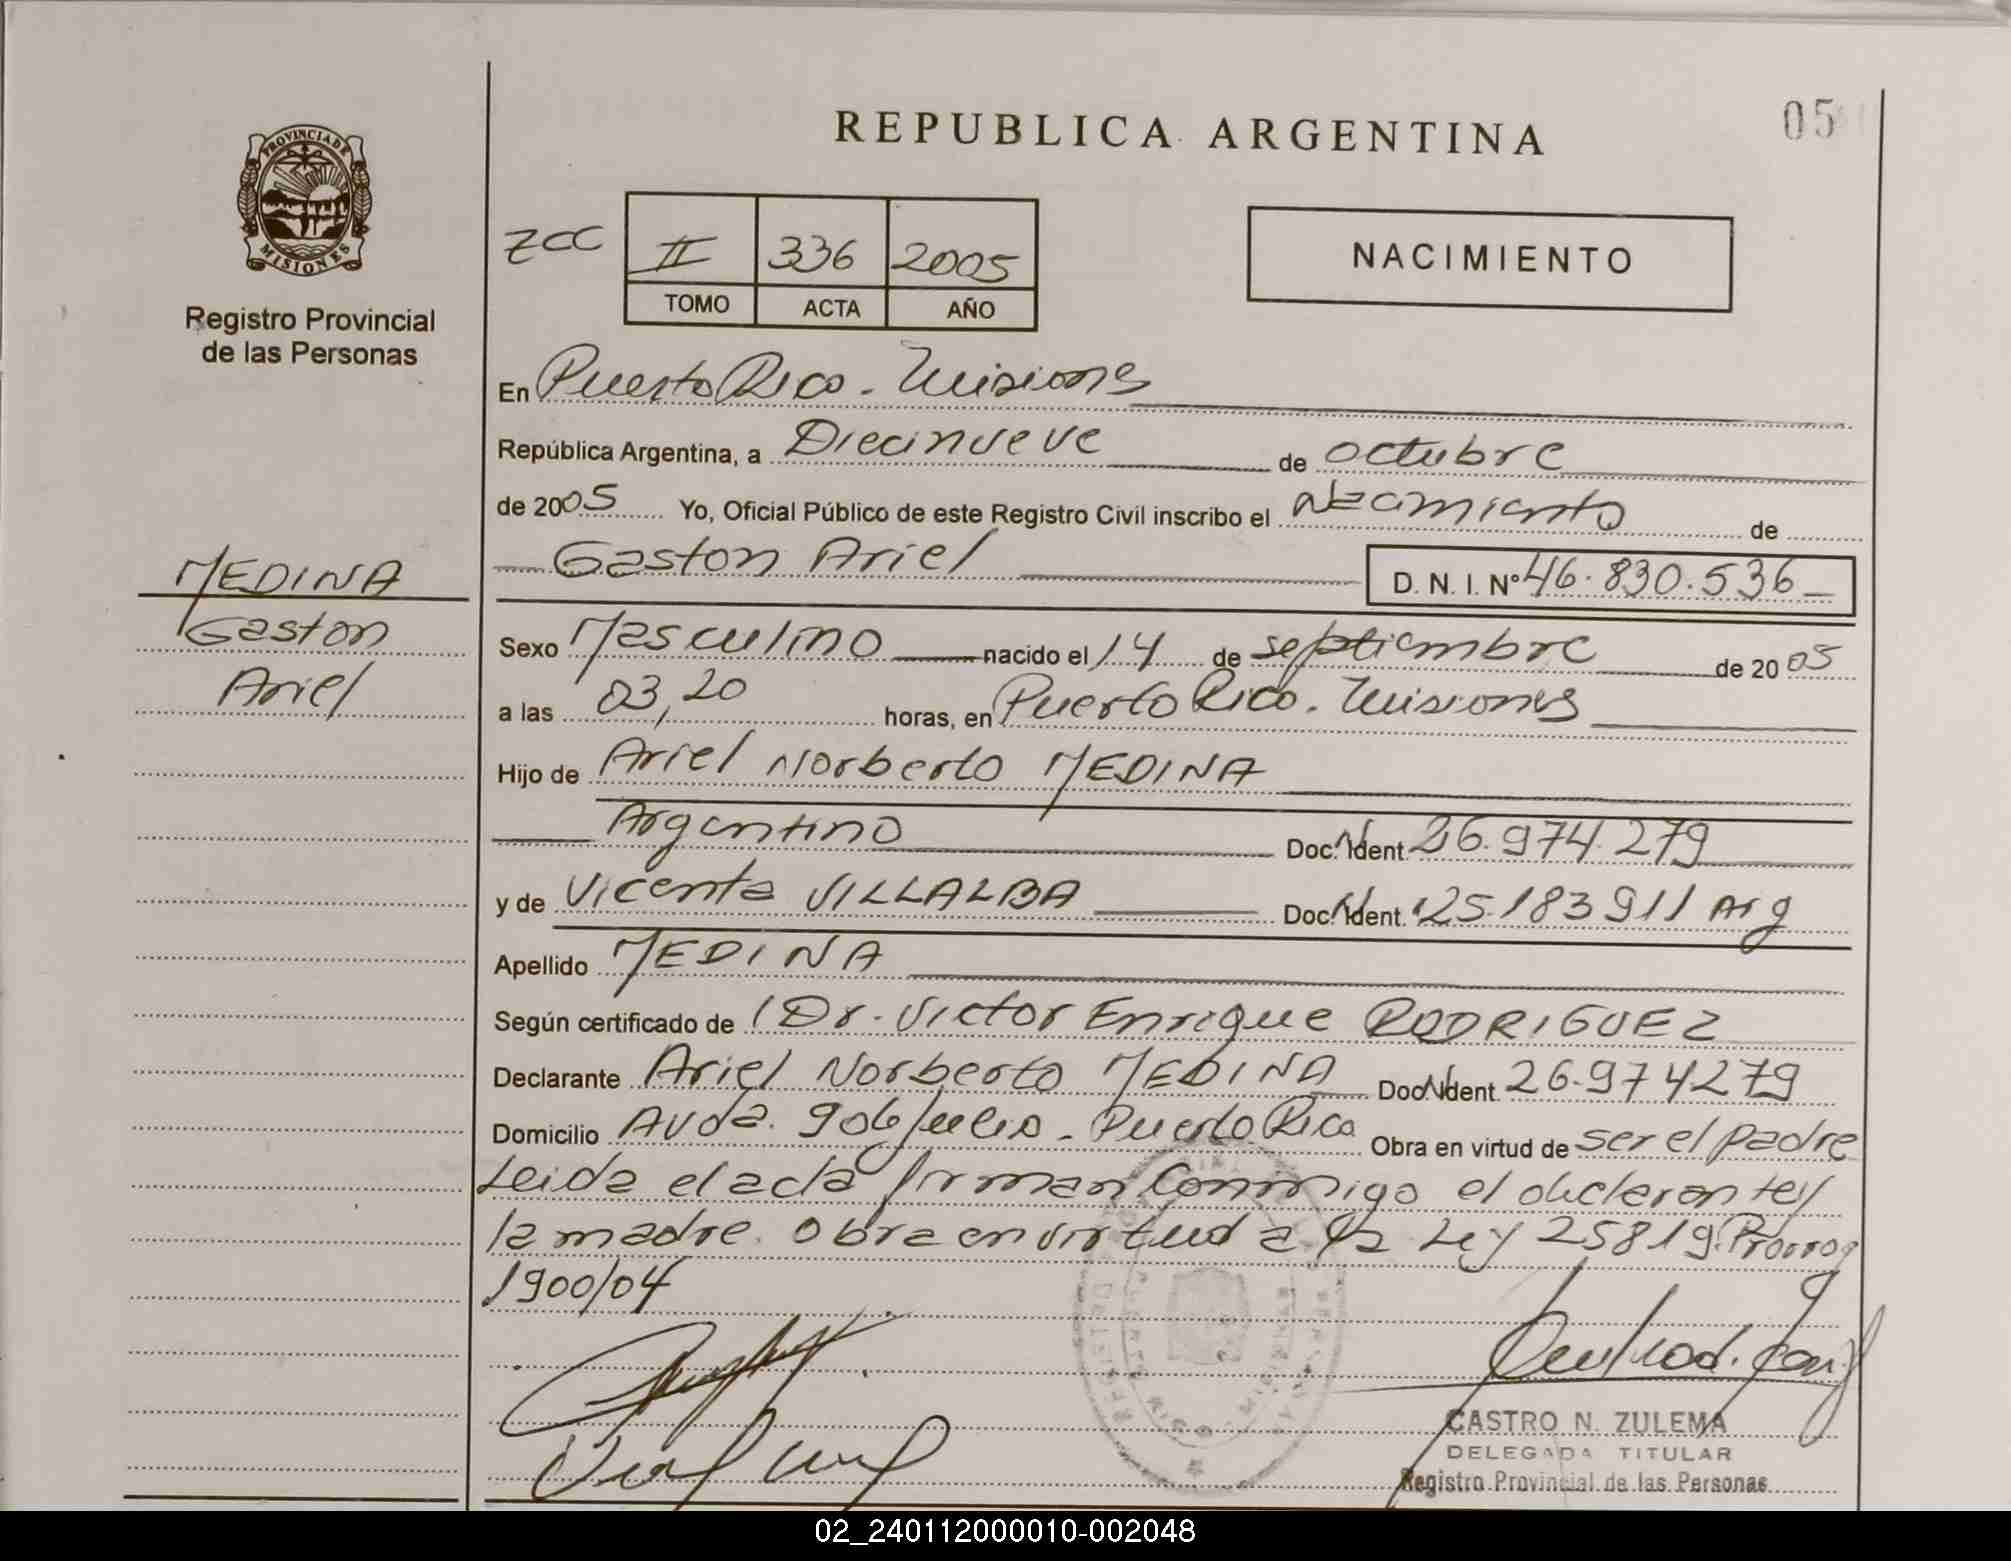 REPUBLICA ARGENTINA
05
PROVINCIA DE
MISIONES
Registro Provincial
de las Personas
ZCC
II 336 2005
TOMO ACTA AÑO
NACIMIENTO
En Puerto Rico. Misiones
República Argentina, a Diecinueve de octubre
de 2005 Yo, Oficial Público de este Registro Civil inscribo el Nacimiento de
Gaston Ariel D. N. I. Nº 46.830.536
MEDINA
Gaston
Ariel
Sexo Masculino nacido el 14 de septiembre de 2005
a las 03,20 horas, en Puerto Rico. Misiones
Hijo de Ariel Norberto MEDINA
Argentino Doc. Ident. 26.974.279
y de Vicenta VILLALBA Doc. Ident. 25.183911 Arg
Apellido MEDINA
Según certificado de Dr. Victor Enrique RODRIGUEZ
Declarante Ariel Norberto MEDINA Doc. Ident. 26.974279
Domicilio Avda. 9 de Julio - Puerto Rico Obra en virtud de ser el padre
Leida el acta firman Conmigo el declarante y
la madre. Obra en virtud a la Ley 25819. Prorrog
1900/04
CASTRO N. ZULEMA
DELEGADA TITULAR
Registro Provincial de las Personas
02_240112000010-002048